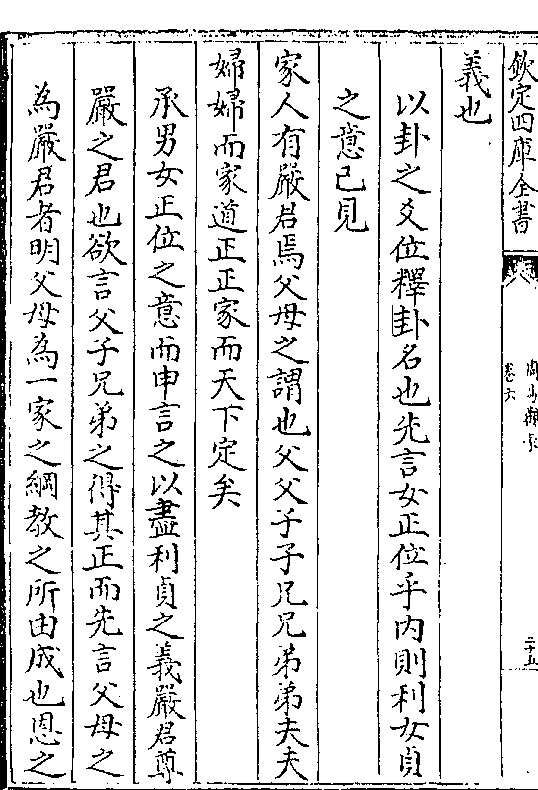 欽定四庫全書
卷六
二十五
義也
以卦之爻位釋卦名也先言女正位乎内則利女貞
之意已見
家人有嚴君焉父母之謂也父父子子兄兄弟弟夫夫
婦婦而家道正正家而天下定矣
承男女正位之意而申言之以盡利貞之義嚴君尊
嚴之君也欲言父子兄弟之得其正而先言父母之
為嚴君者明父母為一家之綱教之所由成也恩之